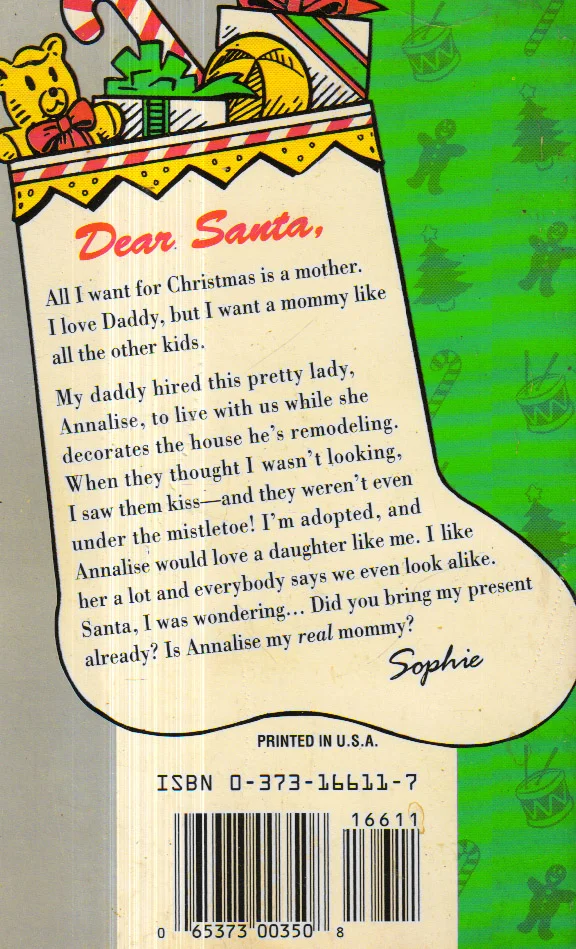 Dear Santa,
All I want for Christmas is a mother.
I love Daddy, but I want a mommy like
all the other kids.
My daddy hired this pretty lady,
Annalise, to live with us while she
decorates the house he's remodeling.
When they thought I wasn't looking,
I saw them kiss—and they weren't even
under the mistletoe! I'm adopted, and
Annalise would love a daughter like me. I like
her a lot and everybody says we even look alike.
Santa, I was wondering... Did you bring my present
already? Is Annalise my real mommy?
Sophie
PRINTED IN U.S.A.
ISBN 0-373-16611-7
16611
0 65373 00350 8